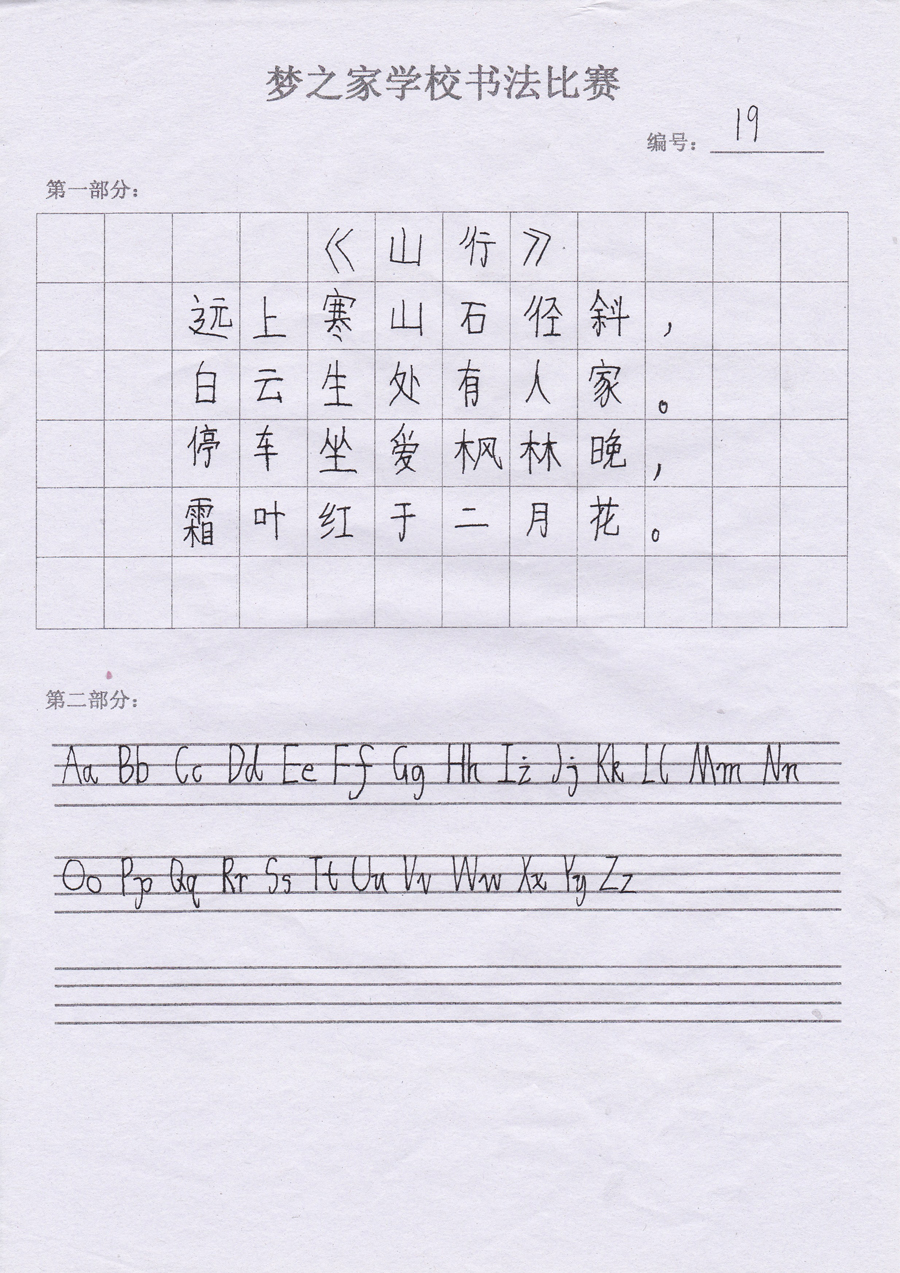 梦之家学校书法比赛
编号： 19
第一部分：
《山行》
远上寒山石径斜，
白云生处有人家。
停车坐爱枫林晚，
霜叶红于二月花。
第二部分：
Aa Bb Cc Dd Ee Ff Gg Hh Ii Jj Kk Ll Mm Nn
Oo Pp Qq Rr Ss Tt Uu Vv Ww Xx Yy Zz